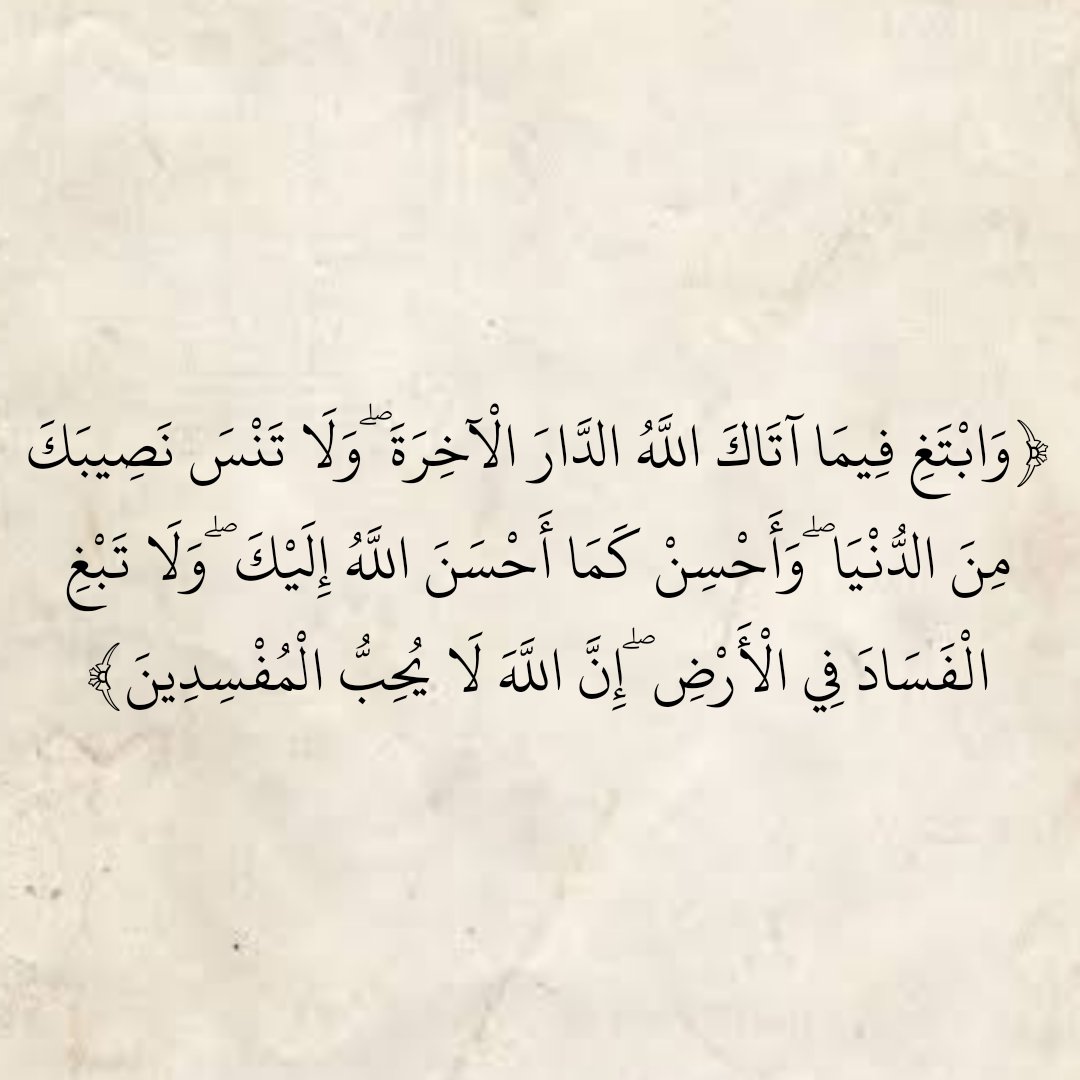 ﴿وَابْتَغِ فِيمَا آتَاكَ اللَّهُ الدَّارَ الْآخِرَةَ ۖ وَلَا تَنْسَ نَصِيبَكَ
مِنَ الدُّنْيَا ۖ وَأَحْسِنْ كَمَا أَحْسَنَ اللَّهُ إِلَيْكَ ۖ وَلَا تَبْغِ
الْفَسَادَ فِي الْأَرْضِ ۖ إِنَّ اللَّهَ لَا يُحِبُّ الْمُفْسِدِينَ﴾